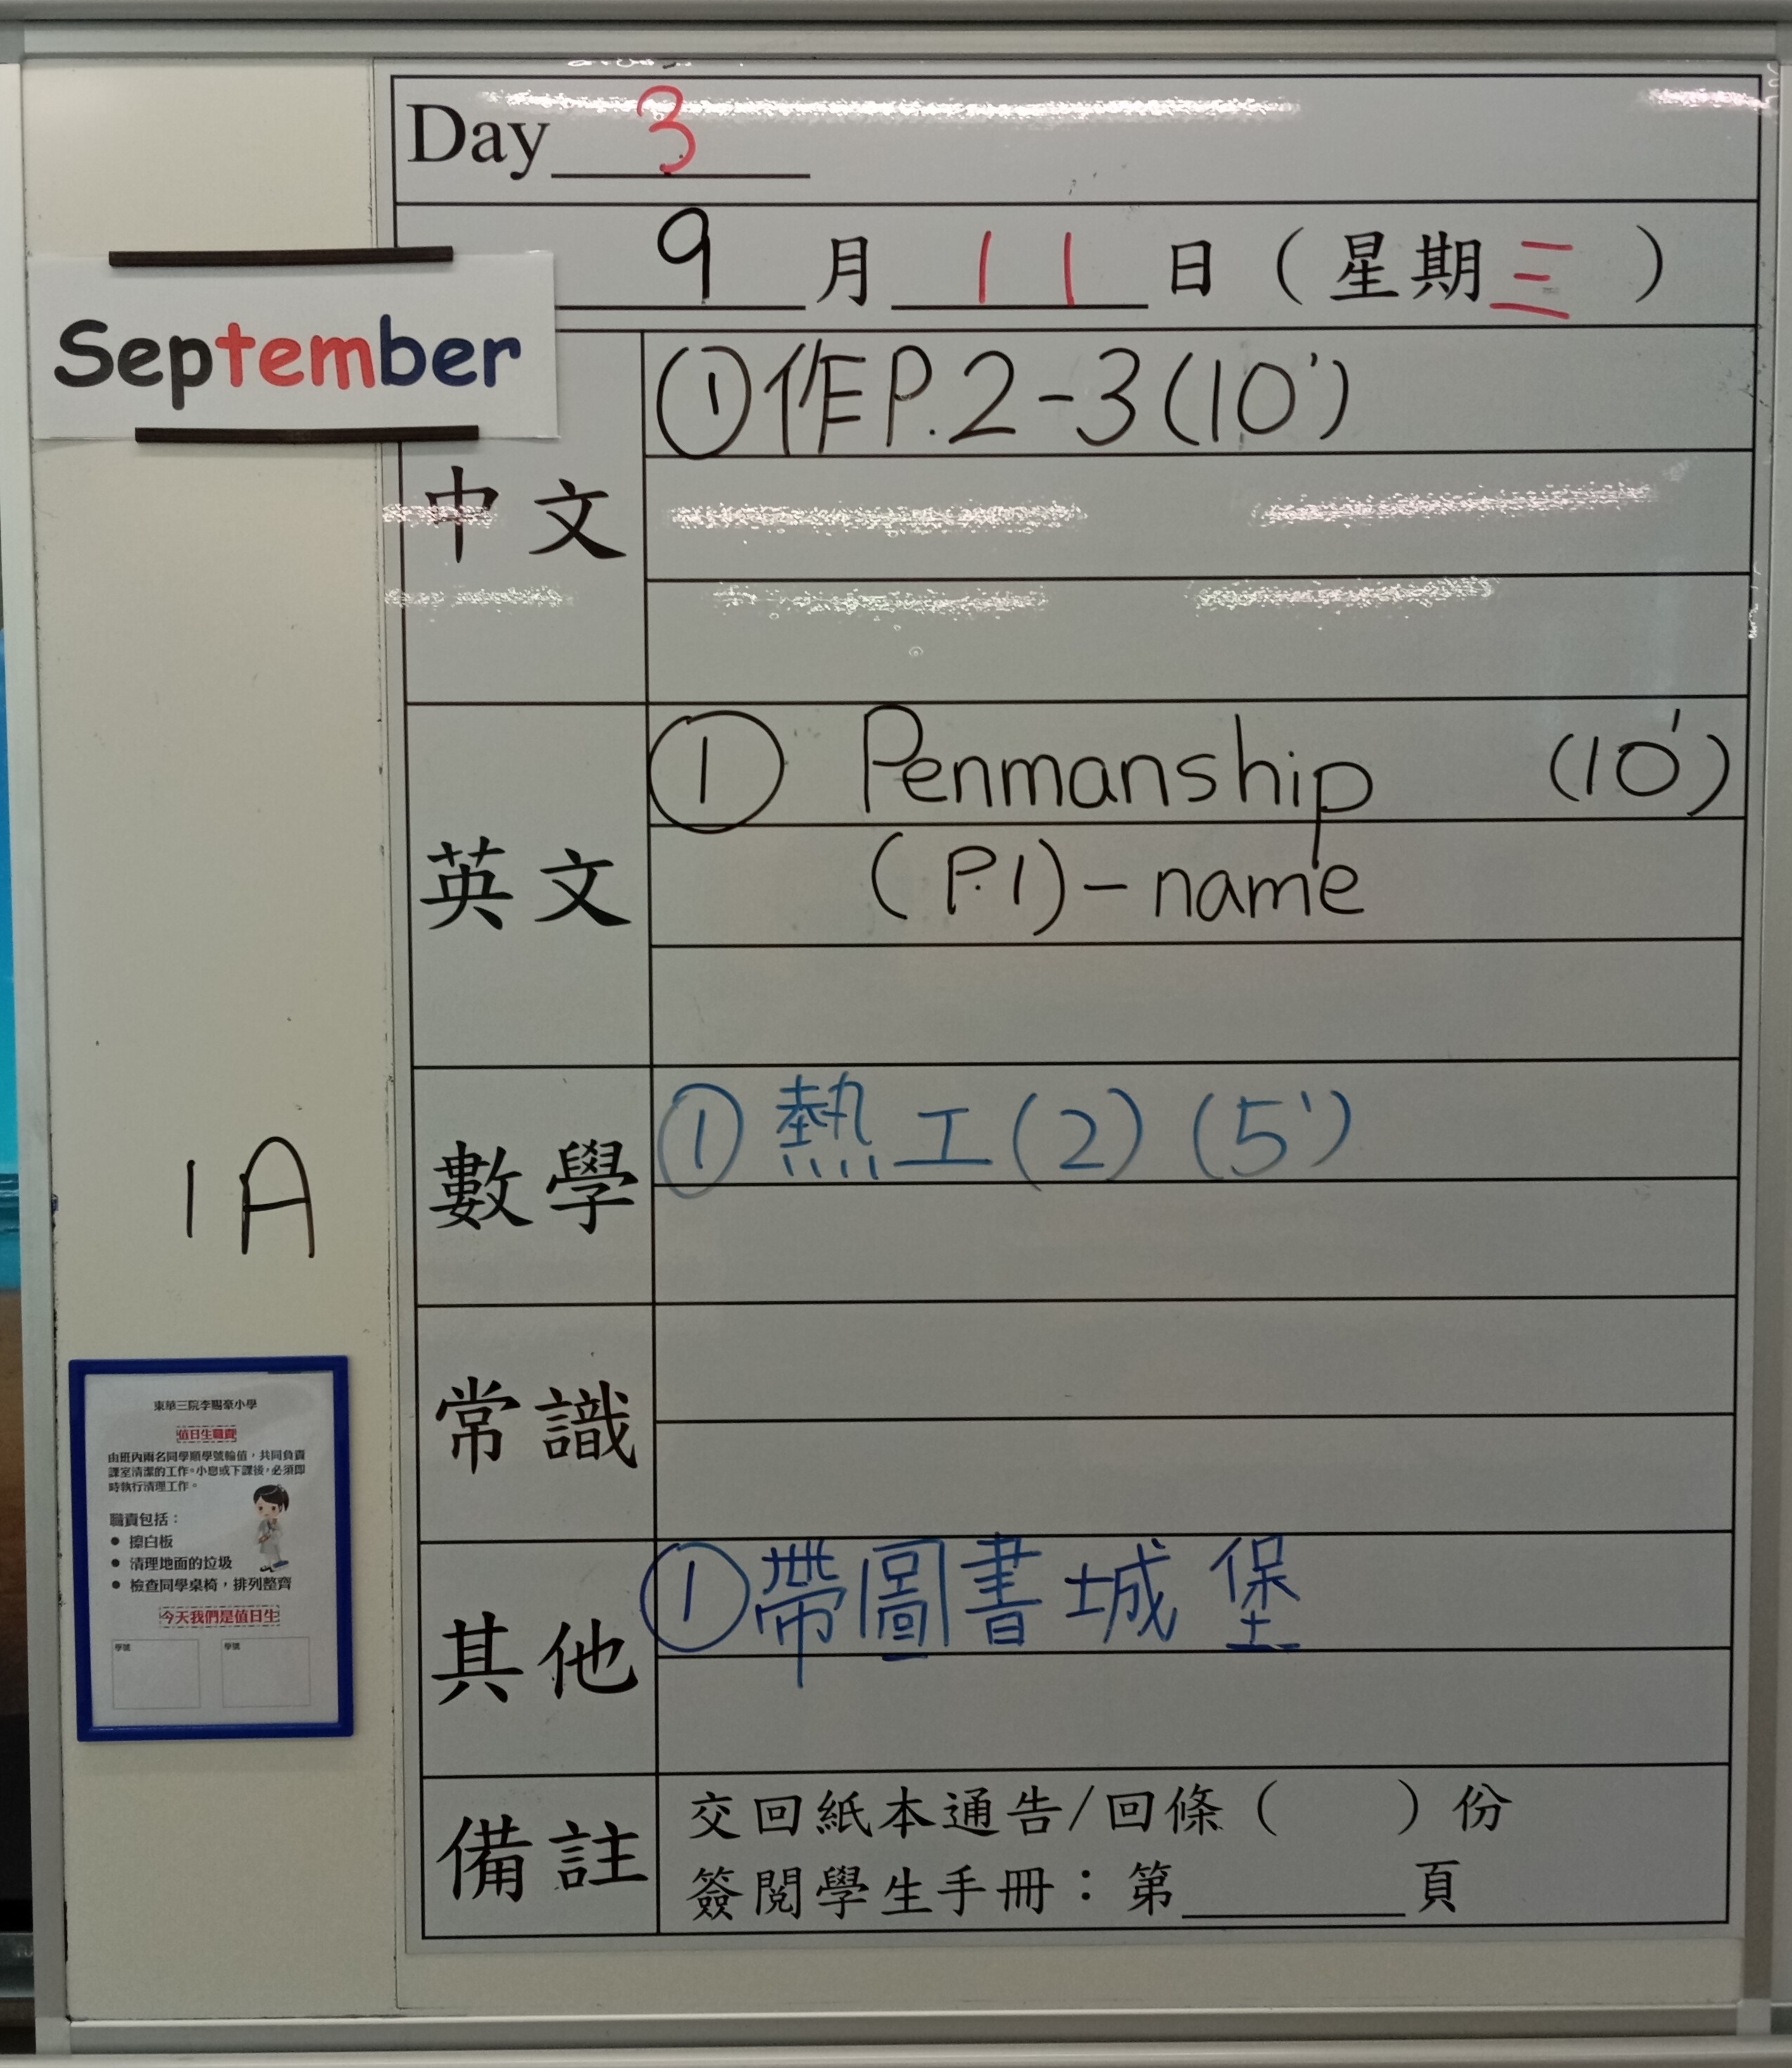 Day 3
9 月 11 日（星期三）
September
中文
①作P.2-3(10')
英文
① Penmanship (10')
(P.1)-name
數學
①熱工(2)(5')
常識
其他
①帶圖書城堡
備註
交回紙本通告/回條（ ）份
簽閱學生手冊：第 頁
1A
東華三院李賜豪小學
值日生職責
由班內兩名同學順學號輪值，共同負責
課室清潔的工作。小息或下課後，必須即
時執行清理工作。
職責包括：
● 擦白板
● 清理地面的垃圾
● 檢查同學桌椅，排列整齊
今天我們是值日生
學號 學號